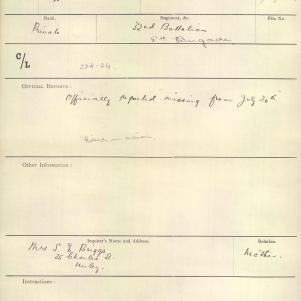 Rank.
Regiment, &c.
File No.
Private
32nd Battalion
8th Brigade
C/L
224-24.
Official Reports:
Officially reported missing from July 20th
Other Information:
Inquirer's Name and Address.
Relation.
Mrs S Briggs
Mother.
25 Charles St.
Unley.
Instructions: